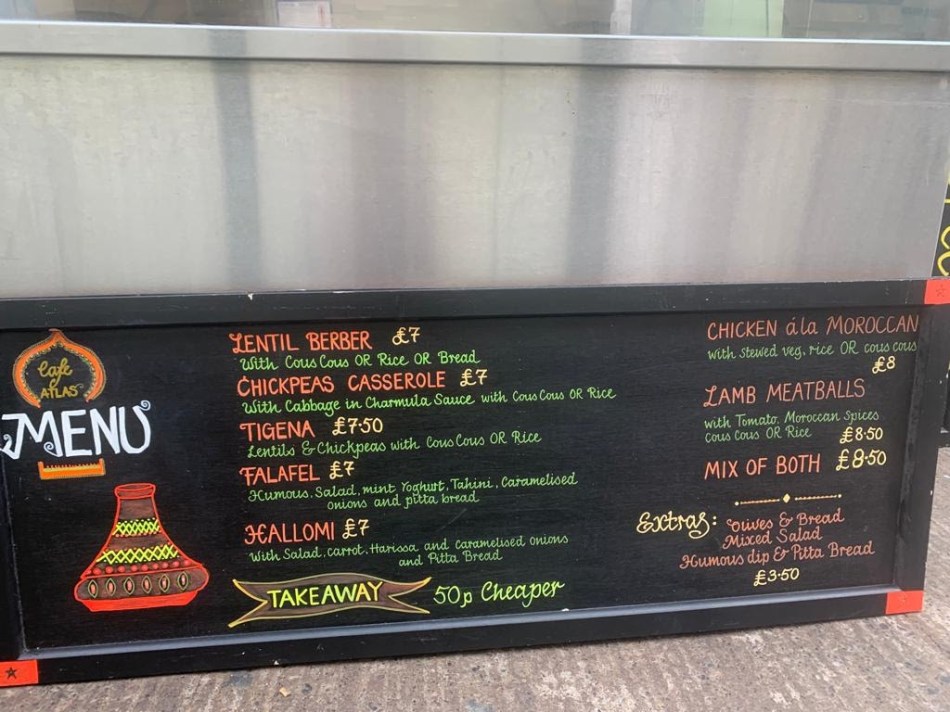 Cafe
ATLAS
MENU
LENTIL BERBER £7
With Cous Cous OR Rice OR Bread
CHICKPEAS CASSEROLE £7
With Cabbage in Charmula Sauce with Cous Cous OR Rice
TIGENA £7·50
Lentils & Chickpeas with Cous Cous OR Rice
FALAFEL £7
Humous. Salad. mint Yoghurt. Tahini. Caramelised
onions and pitta bread
HALLOMI £7
With Salad. Carrot. Harissa and Caramelised onions
and Pitta Bread
TAKEAWAY 50p Cheaper
CHICKEN ála MOROCCAN
with stewed veg. rice OR cous cous
£8
LAMB MEATBALLS
with Tomato. Moroccan Spices
cous cous OR Rice £8·50
MIX OF BOTH £8·50
Extras: Olives & Bread
Mixed Salad
Humous dip & Pitta Bread
£3·50